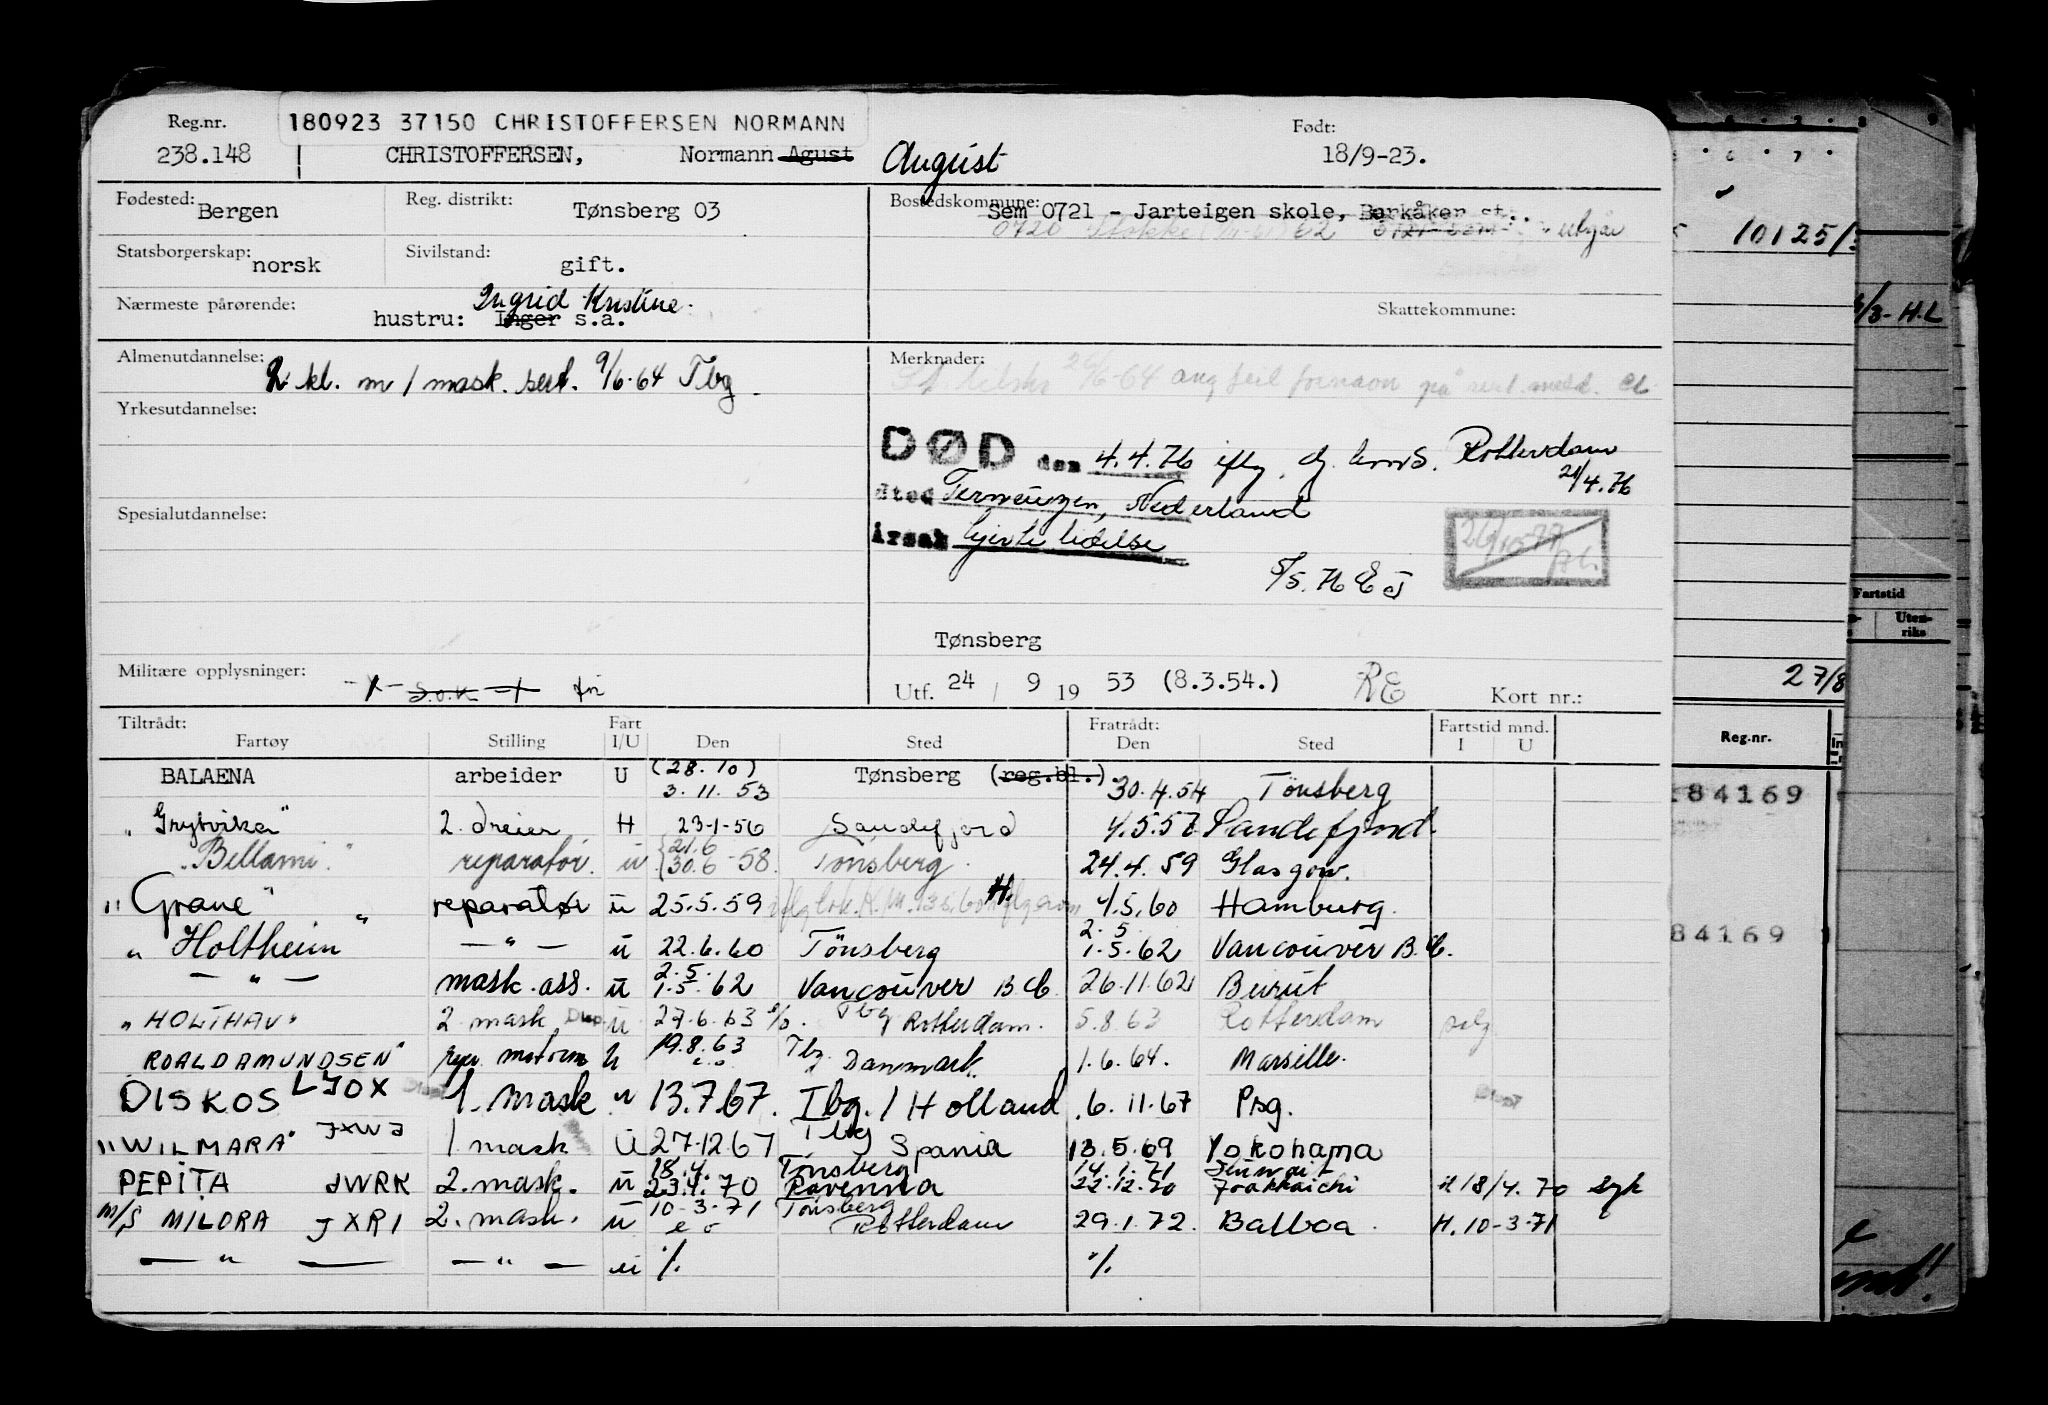 Reg.nr. 180923 37150 CHRISTOFFERSEN NORMANN Født:
238.148 CHRISTOFFERSEN, Normann Agust August 18/9-23.
Fødested: Bergen Reg. distrikt: Tønsberg 03 Bostedskommune: Sem 0721 - Jarteigen skole, Barkåker st..
0720 Stokke
Statsborgerskap: norsk Sivilstand: gift.
Nærmeste pårørende: Ingrid Kristine. Skattekommune:
hustru: Inger s.a.
Almenutdannelse: 2 kl. m / mask. sert. 9/6-64 Tbg. Merknader: 26/6-64 ang feil fornavn på sert. meld.
Yrkesutdannelse:
DØD den 4.4.76 Rotterdam
21/4.76
sted Terneuzen, Nederland
Spesialutdannelse:
Årsak hjerte lidelse
5/5.76 EJ
Tønsberg
Militære opplysninger: Utf. 24 / 9 19 53 (8.3.54.) RE Kort nr.:
Tiltrådt: Fart Fratrådt: Fartstid mnd.
Fartøy Stilling I/U Den Sted Den Sted I U
BALAENA arbeider U (28.10) 3.11.53 Tønsberg (reg.bl.) 30.4.54 Tönsberg
"Grytviken" 2. dreier H 23-1-56 Sandefjord 4.5.57 Sandefjord.
"Bellami" reparatør. u 21.6 30.6-58. Tønsberg. 24.4.59 Glasgow.
"Grane" reparatør u 25.5.59 H. 4.5.60 Hamburg.
"Holtheim" — " — u 22.6.60 Tønsberg 2.5. 1.5.62 Vancouver B.C.
— " — mask. ass. u 2.5. 1.5.62 Vancouver B.C. 26.11.62 Beirut
"HOLTHAV" 2 mask Disp. u 27.6.63 Tbg Rotterdam. 5.8.63 Rotterdam
ROALD AMUNDSEN" rep. motorm u 19.8.63 Tbg. Danmark. 1.6.64. Marseille.
DISKOS LJOX 1. mask u 13.7.67. Tbg. / Holland 6.11.67 Prsg.
"WILMARA" JXWJ 1 mask U 27-12.67 Tbg Spania 13.5.69 Yokohama
PEPITA JWRK 2. mask. u 18.4. 23.4.70 Tönsberg Ravenna 14.1.71 22.12.70 H 18/4.70 syk
M/S MILORA JXRI 2. mask. u 10-3-71 e o Tönsberg Rotterdam 29.1.72. Balboa. H. 10-3-71
— " — — " — u %. %.
10125/
/3-H.L
Fartstid
Utenriks
27/8
Reg.nr.
184169
84169